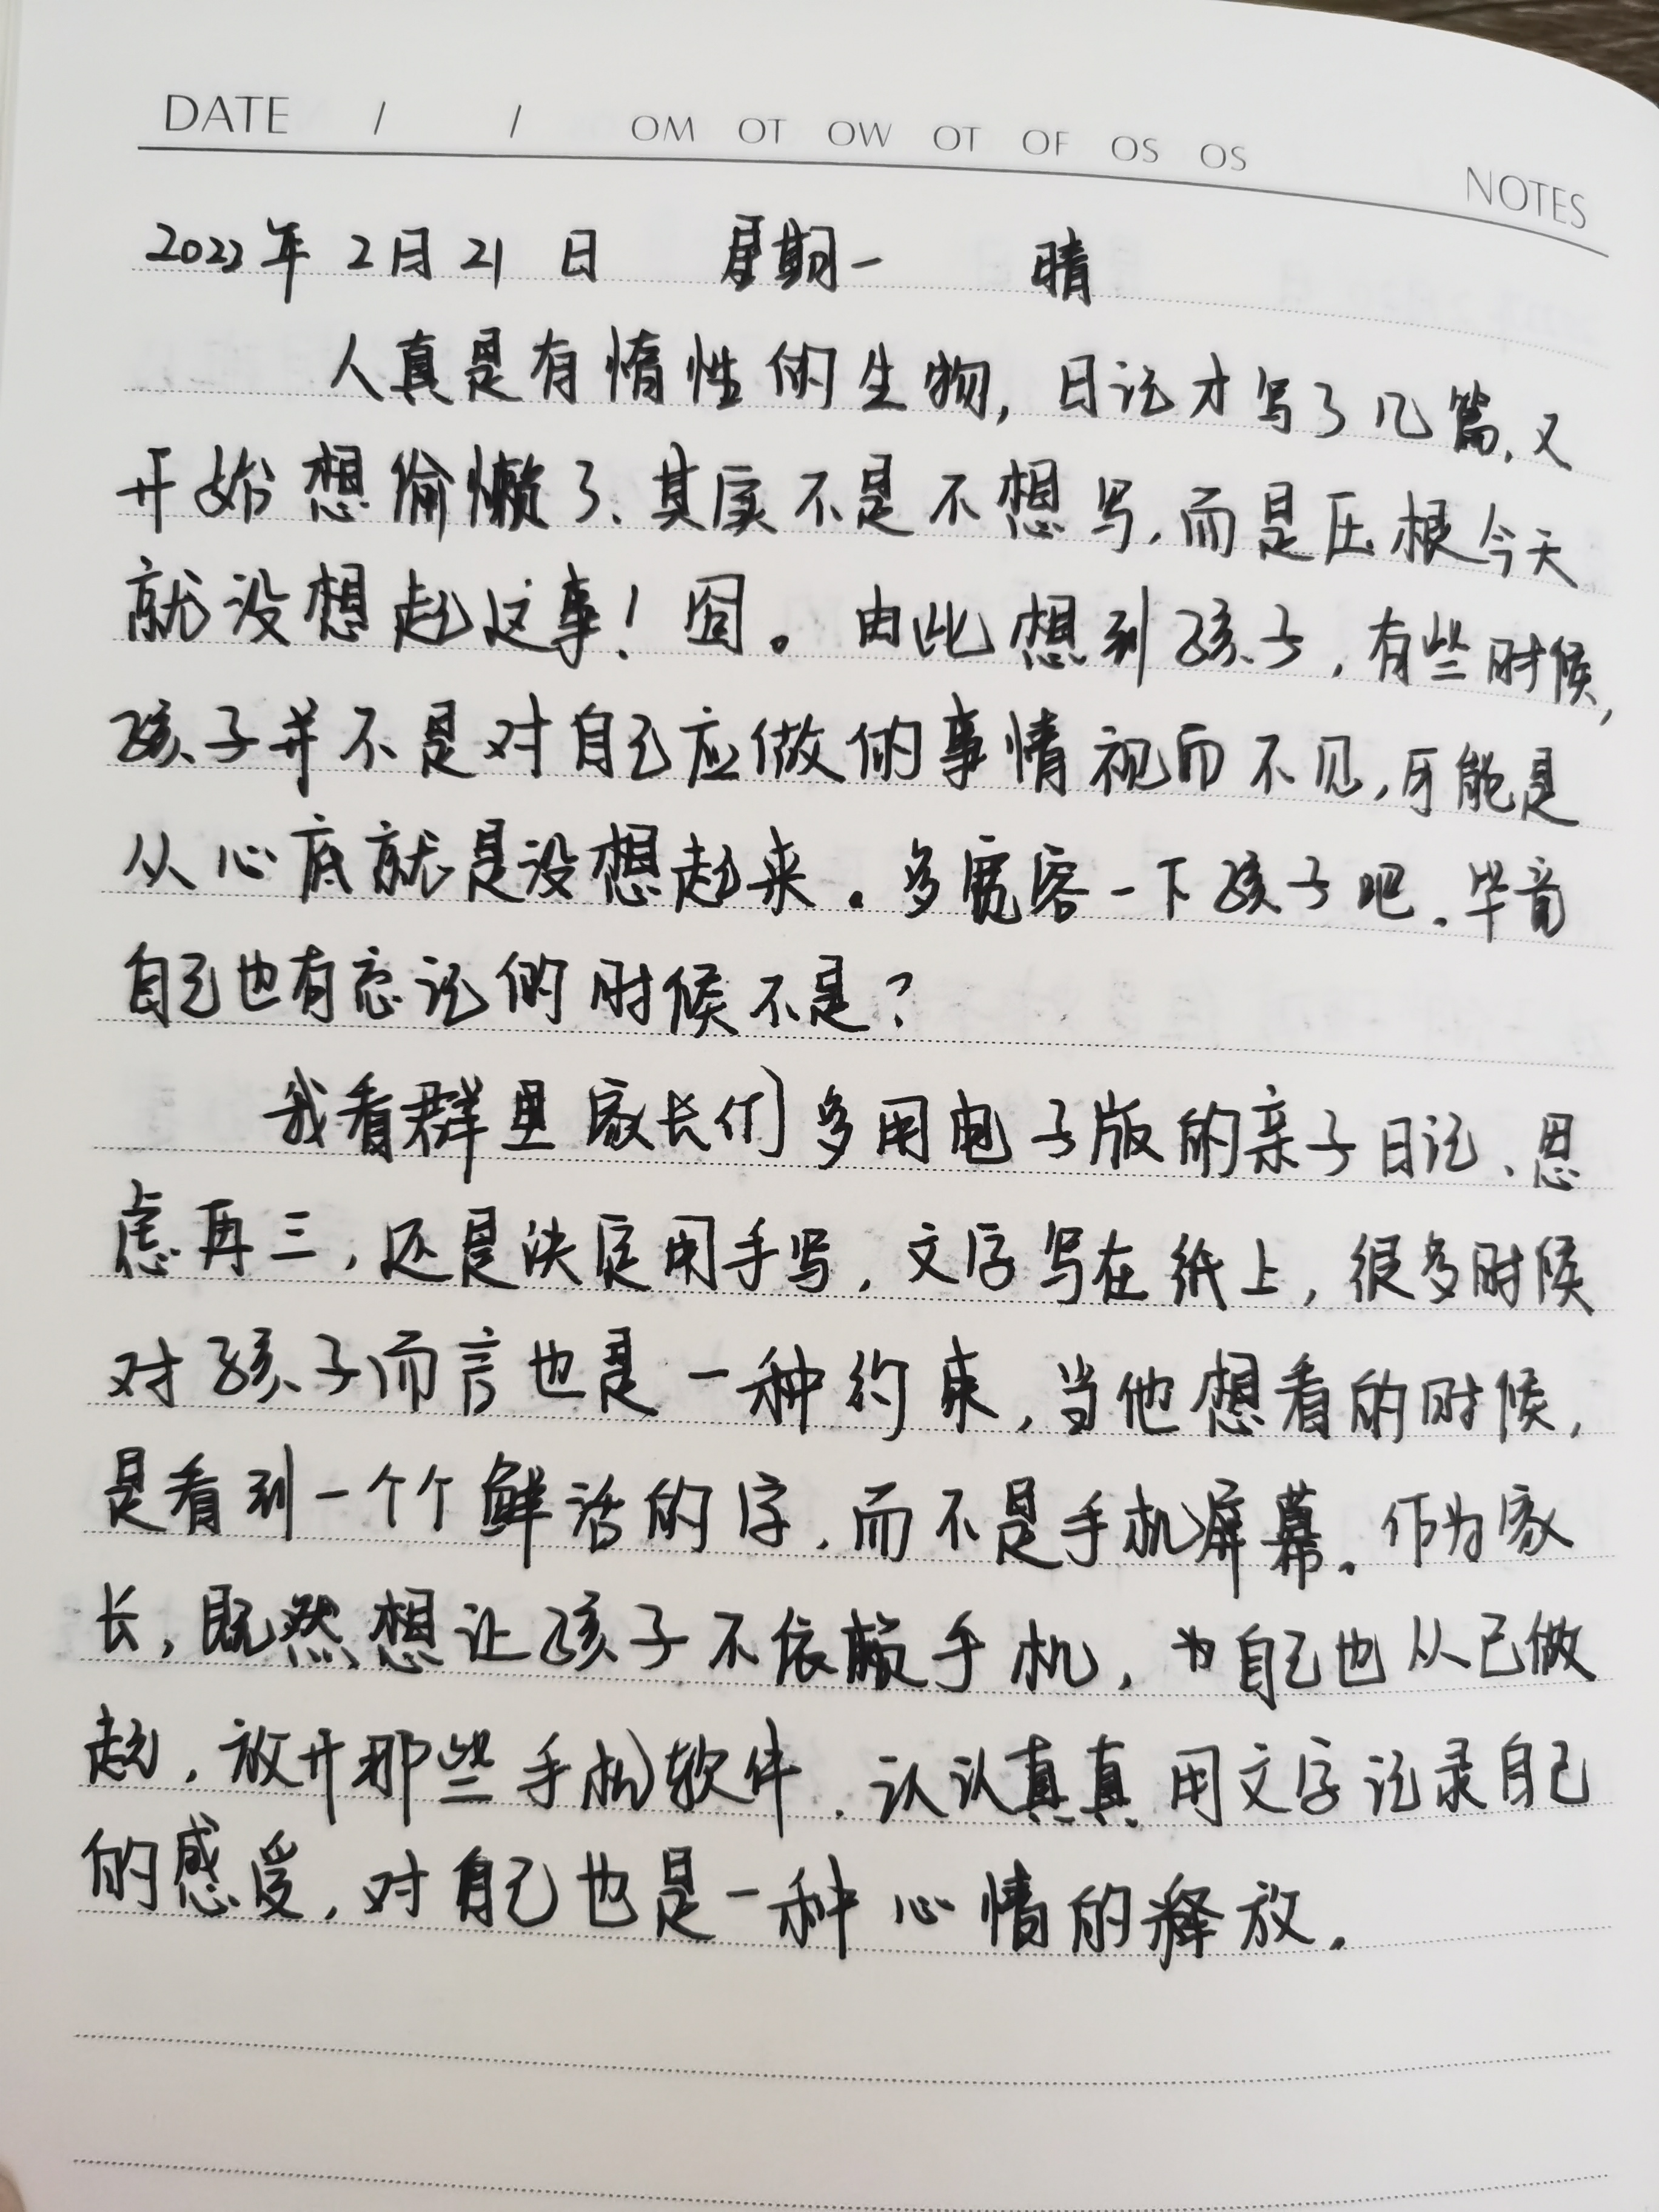 DATE / / OM OT OW OT OF OS OS
NOTES
2022年 2月 21 日 星期一 晴
人真是有惰性的生物，日记才写了几篇，又
开始想偷懒了、其实不是不想写，而是压根今天
就没想起这事！囧。由此想到孩子，有些时候，
孩子并不是对自己应做的事情视而不见，可能是
从心底就是没想起来。多宽容一下孩子吧。毕竟
自己也有忘记的时候不是？
我看群里家长们多用电子版的亲子日记、思
虑再三，还是决定用手写，文字写在纸上，很多时候
对孩子而言也是一种约束，当他想看的时候，
是看到一个个鲜活的字，而不是手机屏幕。作为家
长，既然想让孩子不依赖手机，为自己也从己做
起，放开那些手机软件．认认真真 用文字记录自己
的感受，对自己也是一种心情的释放．